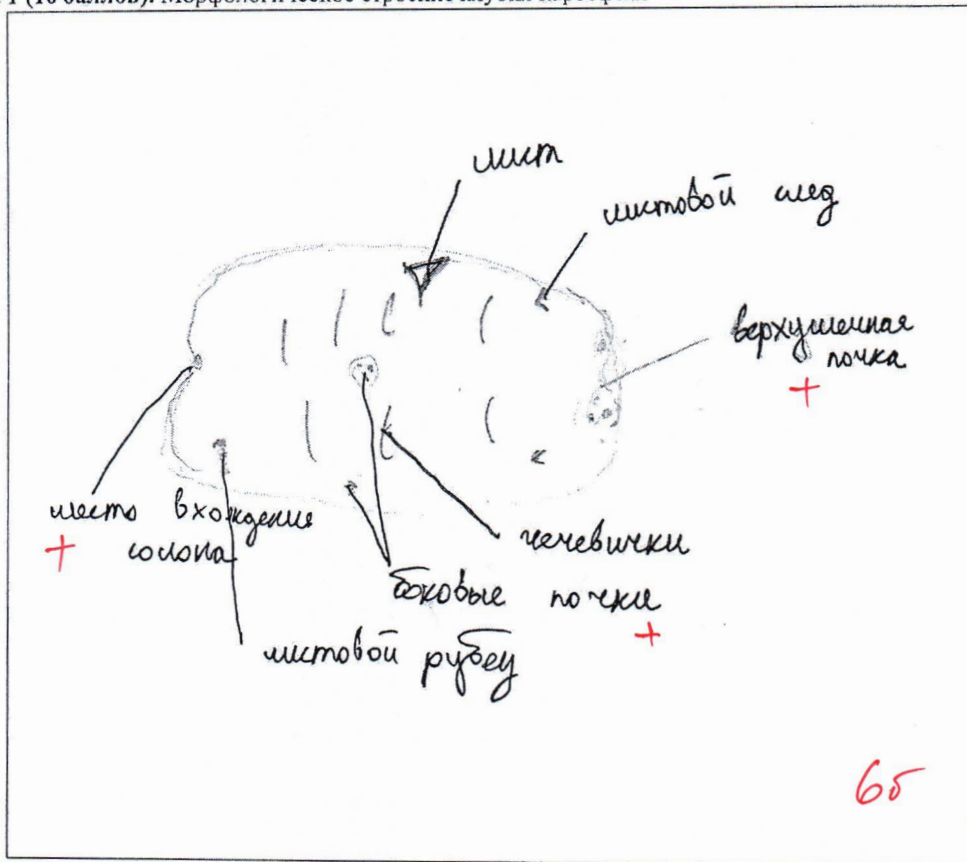 1 (10 баллов). Морфологическое строение клубня картофеля
лист
листовой след
верхушечная
почка
+
место вхождения
+ столона
чечевички
боковые почки
+
листовой рубец
6б